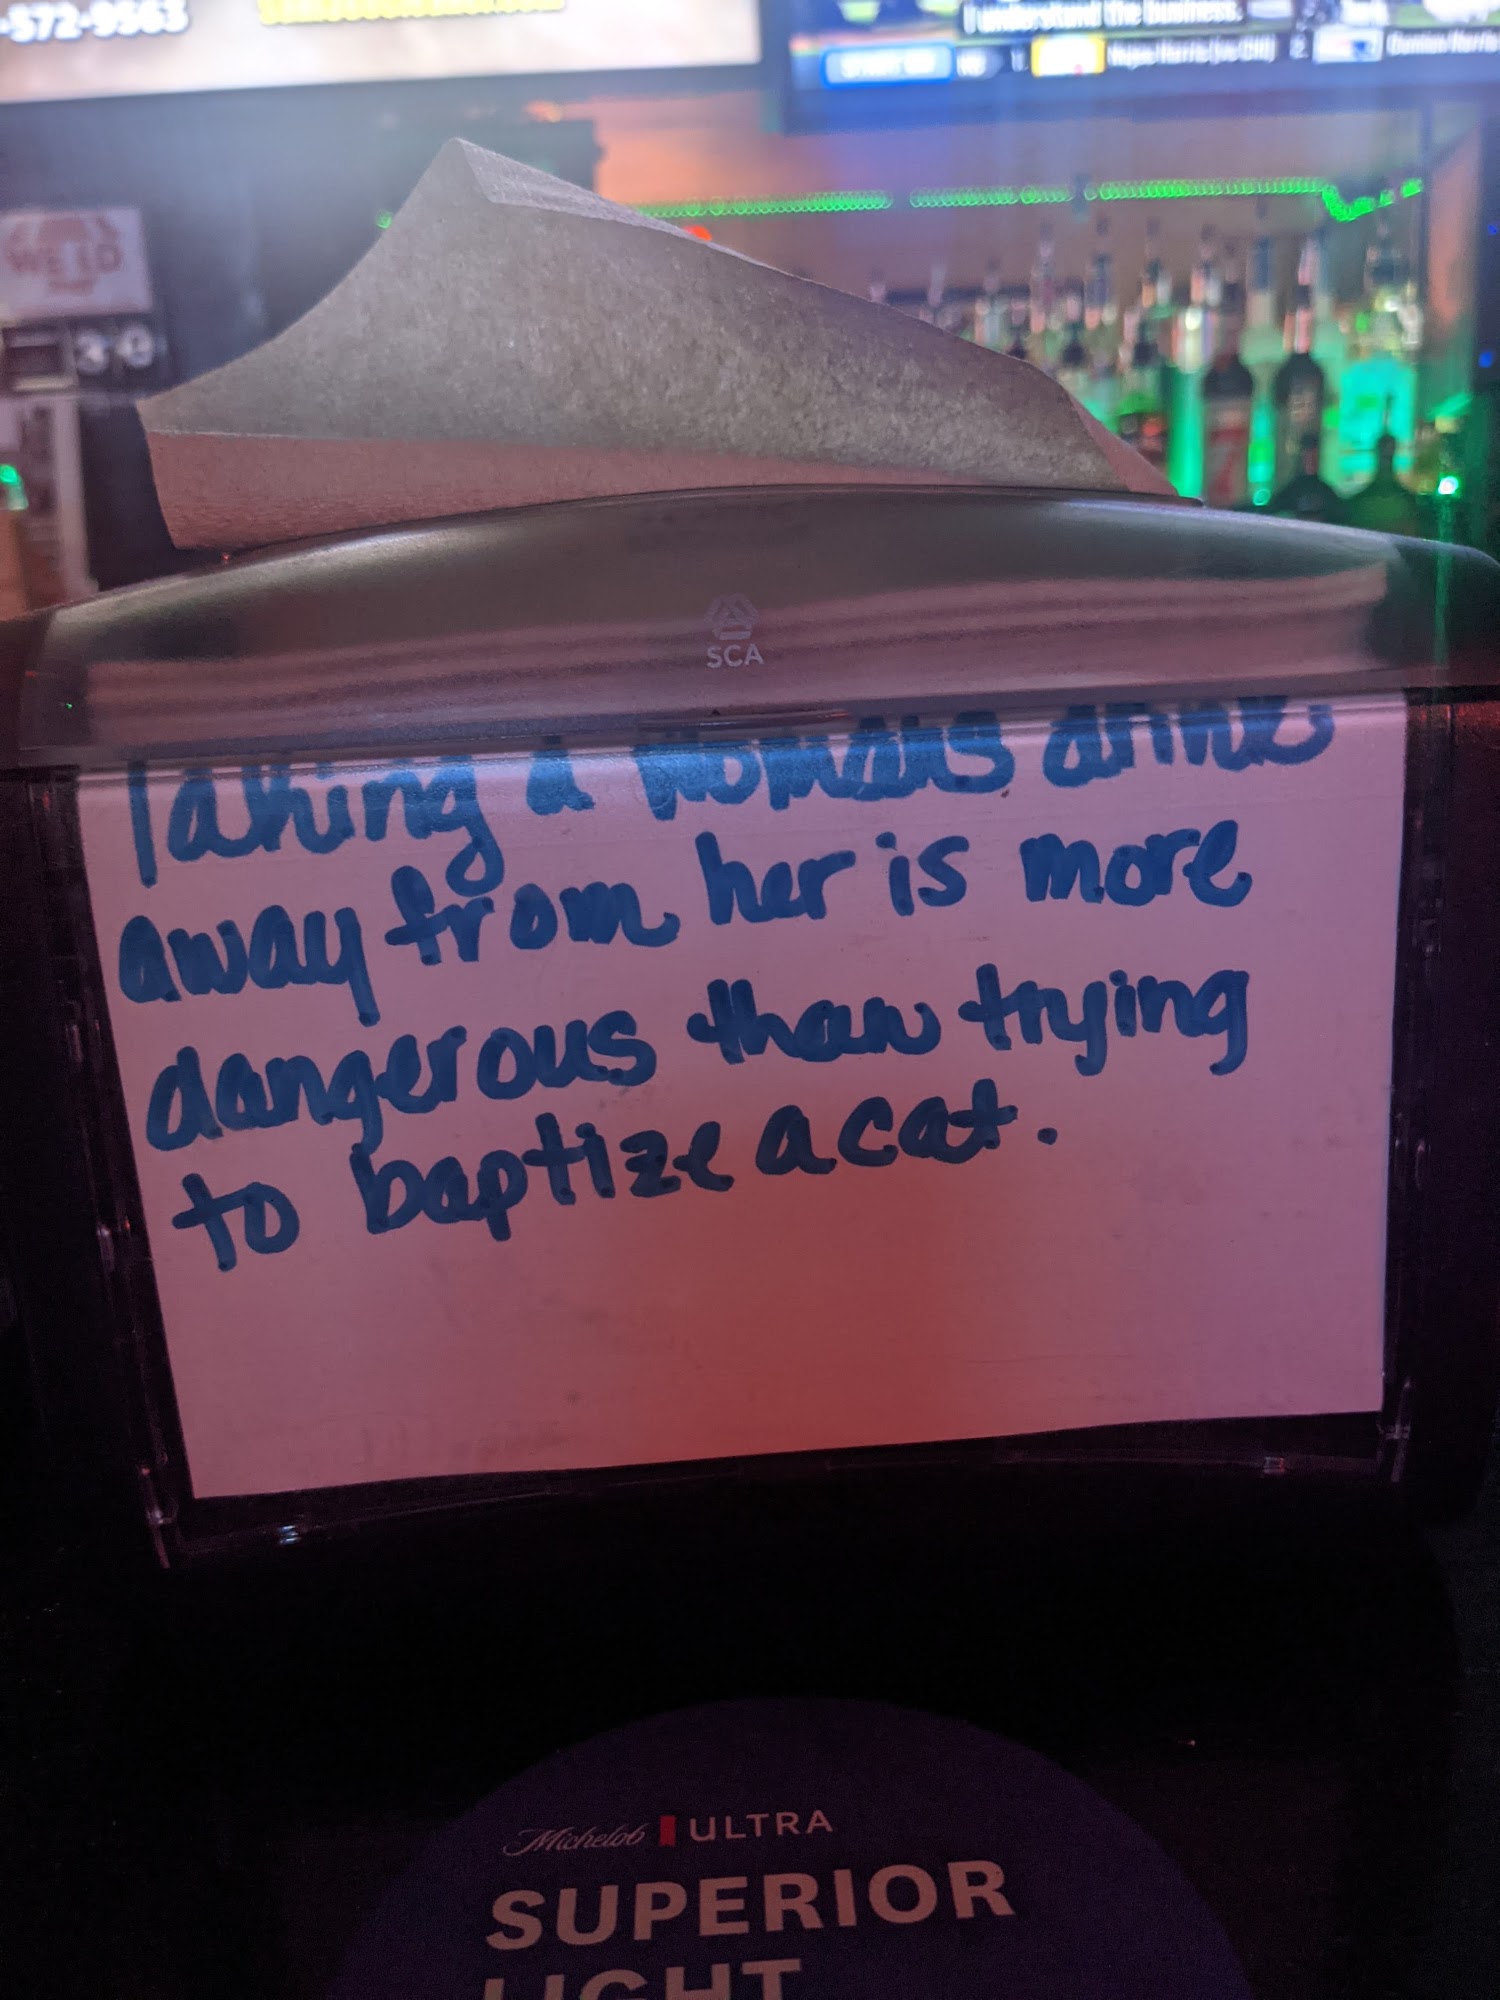 -572-9563
I understand the business.
30
SCA
Taking a womans drink
away from her is more
dangerous than trying
to baptize a cat.
Michelob ULTRA
SUPERIOR
LIGHT